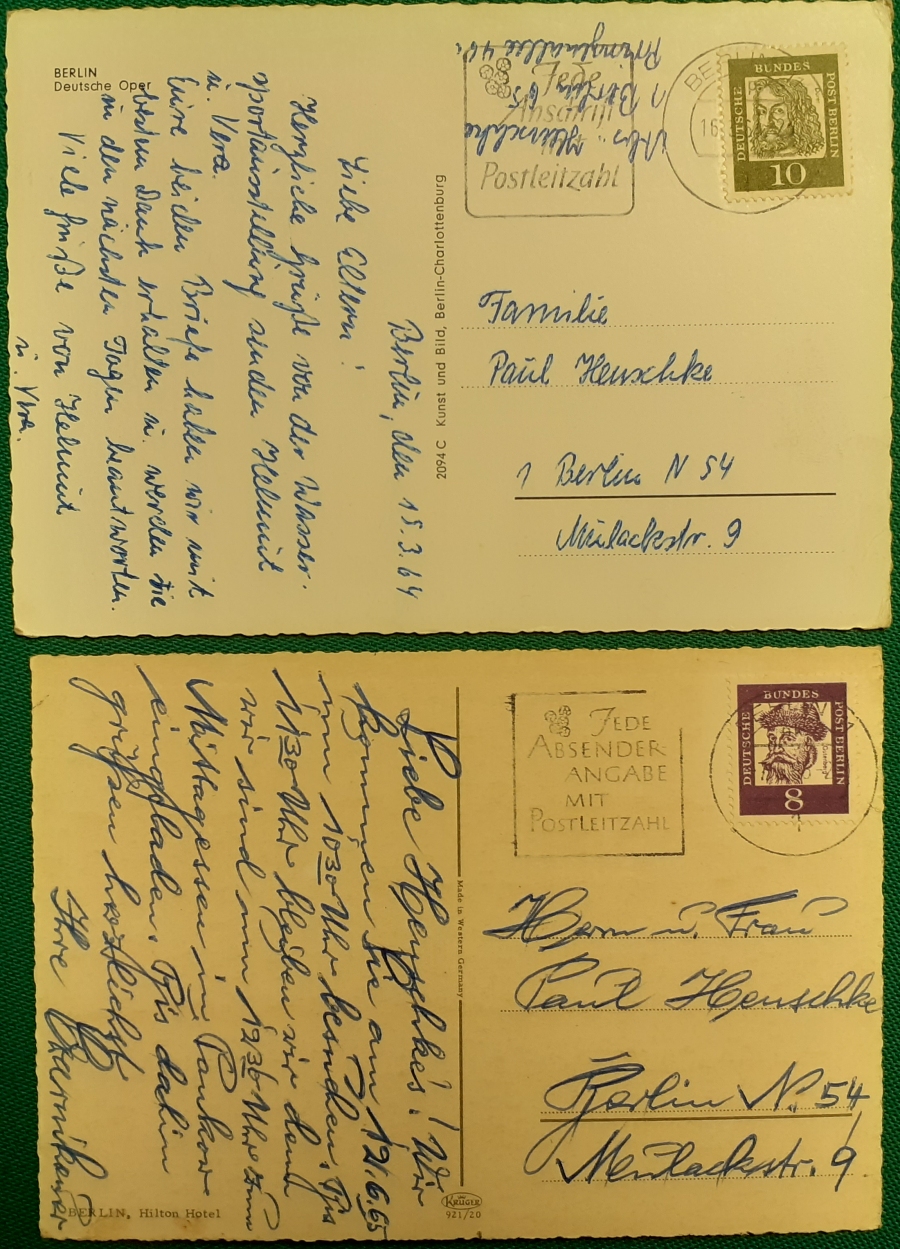 BERLIN
Deutsche Oper
Berlin, den 15.3.64
Liebe Eltern!
Herzliche Grüße von der Wasser-
sportausstellung senden Helmut
u. Vera.
Eure beiden Briefe haben wir mit
bestem Dank erhalten u. werden sie
in den nächsten Tagen beantworten.
Viele Grüße von Helmut
u. Vera.
2094 C Kunst und Bild, Berlin-Charlottenburg
Abs.: Henschke
1 Berlin 65
Prinzenallee 46
Jede
Anschrift
Postleitzahl
BERLIN
16
DEUTSCHE BUNDESPOST BERLIN
10
Familie
Paul Henschke
1 Berlin N 54
Mulackstr. 9
Liebe Henschkes! Wir
kommen Sie am 12.6.65
um 10³⁰ Uhr besuchen. Bis
11³⁰ Uhr bleiben wir denn
wir sind um 12³⁰ Uhr zum
Mittagessen in Pankow
eingeladen. Bis dahin
grüßen herzlichst
Ihre
BERLIN, Hilton Hotel
Made in Western Germany
KRÜGER
921/20
JEDE
ABSENDER-
ANGABE
MIT
POSTLEITZAHL
DEUTSCHE BUNDESPOST BERLIN
8
Herrn u. Frau
Paul Henschke
Berlin N. 54
Mulackstr. 9